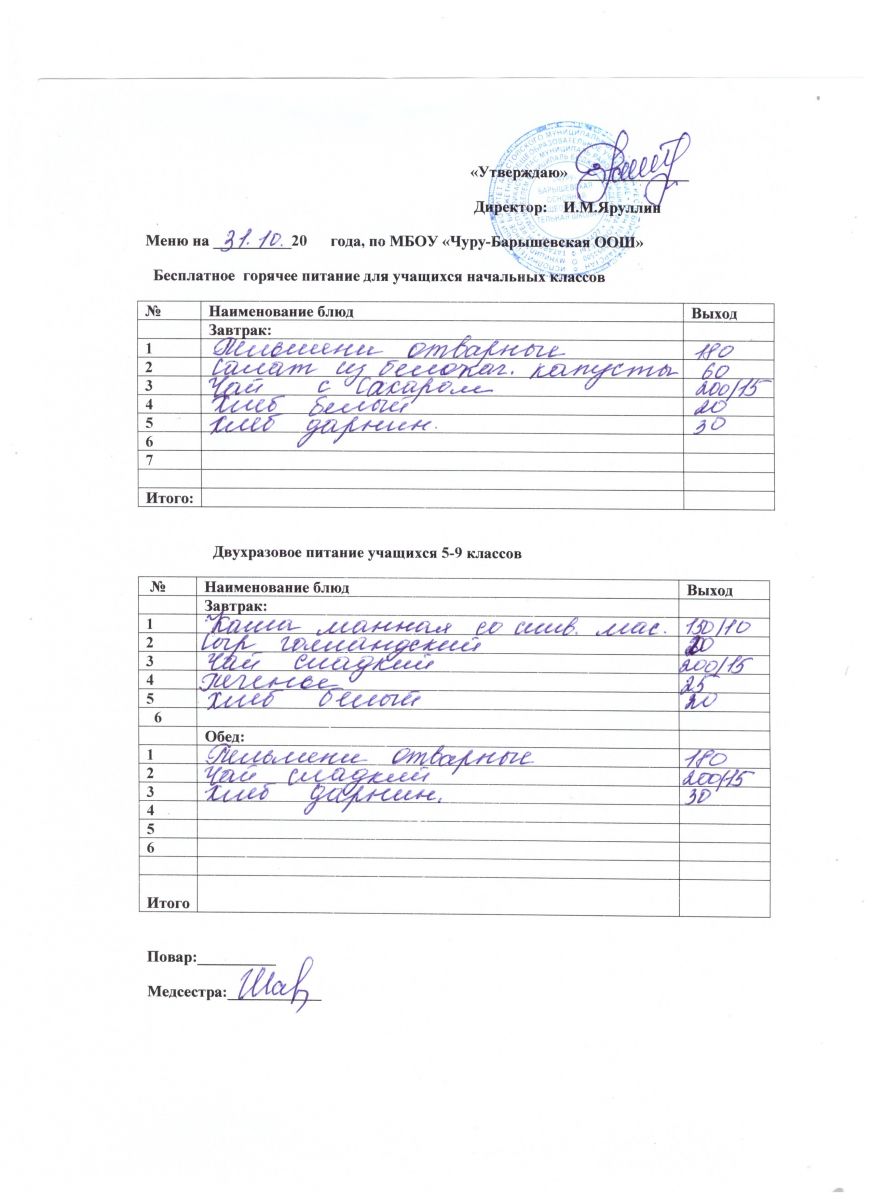 «Утверждаю»
Директор: И.М.Яруллин
Меню на 31.10. 20 года, по МБОУ «Чуру-Барышевская ООШ»
Бесплатное горячее питание для учащихся начальных классов
№ Наименование блюд Выход
Завтрак:
1 Пельмени отварные 180
2 Салат из белокач. капусты 60
3 Чай с сахаром 200/15
4 Хлеб белый 20
5 Хлеб дарниц. 30
6
7
Итого:
Двухразовое питание учащихся 5-9 классов
№ Наименование блюд Выход
Завтрак:
1 Каша манная со слив. мас. 150/10
2 Сыр голландский
3 Чай сладкий 200/15
4 Печенье 25
5 Хлеб белый 20
6
Обед:
1 Пельмени отварные 180
2 Чай сладкий 200/15
3 Хлеб дарниц. 30
4
5
6
Итого
Повар:
Медсестра: